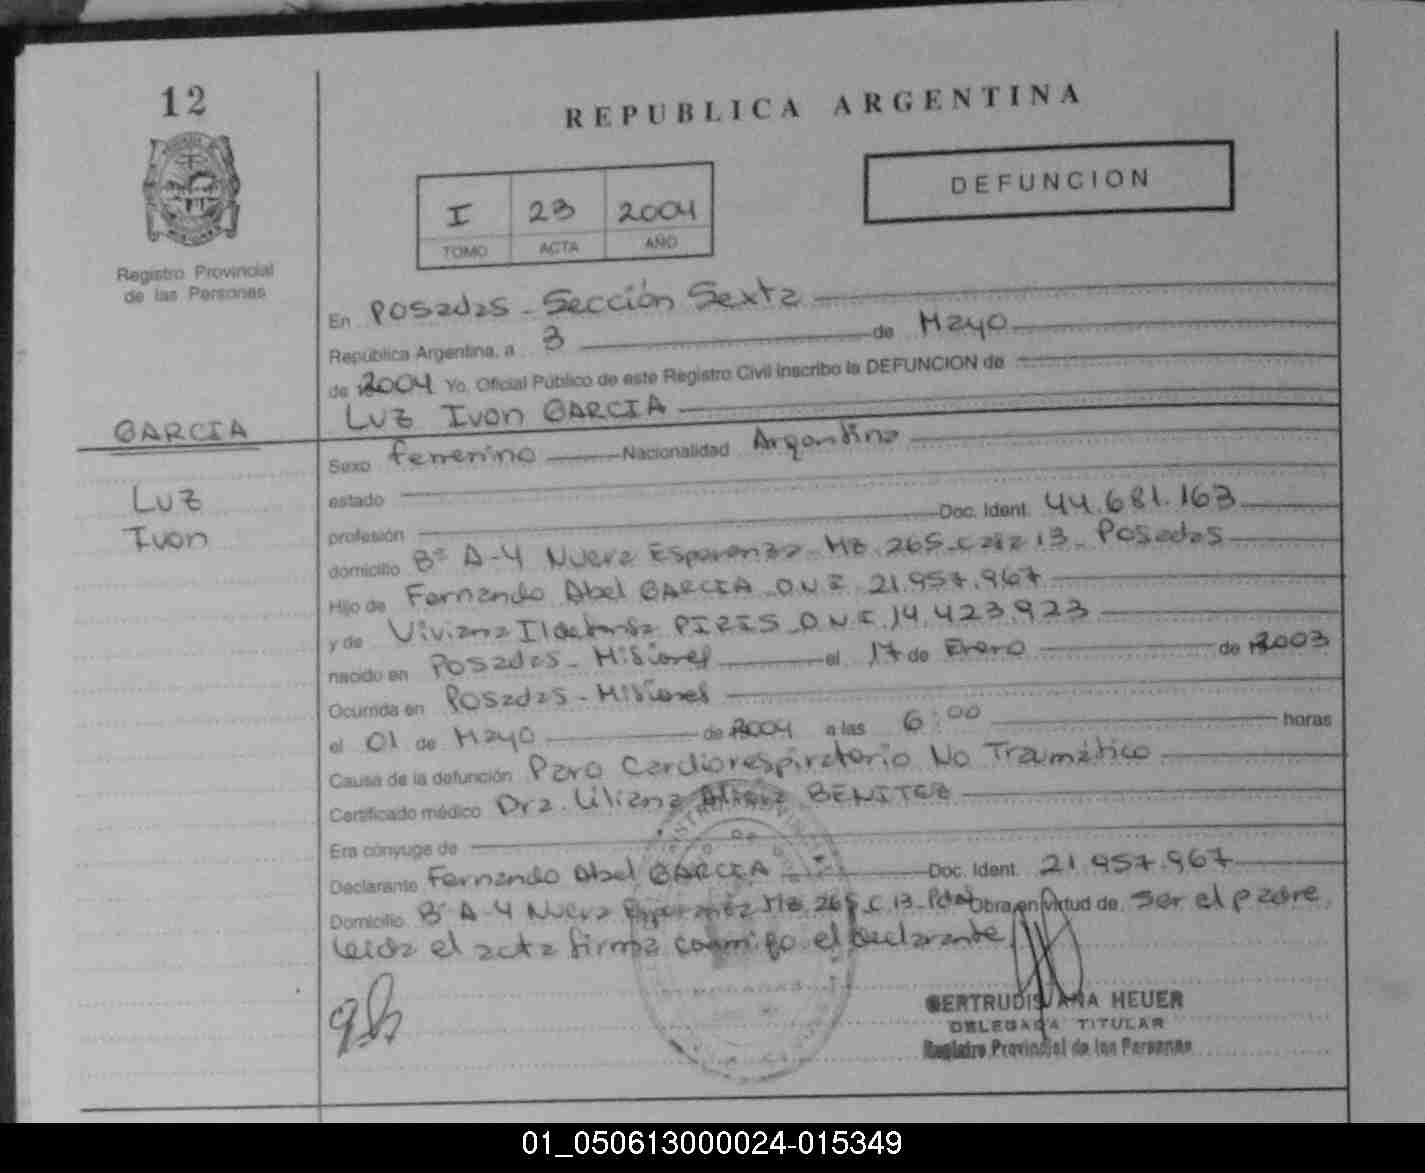 12
REPUBLICA ARGENTINA
DEFUNCION
I 23 2004
TOMO ACTA AÑO
Registro Provincial
de las Personas
En Posadas - Sección Sexta
República Argentina, a 3 de Mayo
de 2004 Yo, Oficial Público de este Registro Civil inscribo la DEFUNCION de
Luz Ivon GARCIA
GARCIA
Luz
Ivon
Sexo femenino Nacionalidad Argentina
estado
profesión Doc. Ident. 44.681.163
domicilio Bº A-4 Nueva Esperanza Mz. 265 - casa 13 - Posadas
Hijo de Fernando Abel GARCIA D.N.I. 21.957.967
y de Viviana PIRIS D.N.I. 14.423.923
nacido en Posadas - Misiones el 17 de Enero de 2003
Ocurrida en Posadas - Misiones
el 01 de Mayo de 2004 a las 6:00 horas
Causa de la defunción Paro Cardiorespiratorio No Traumático
Certificado médico Dra. Liliana BENITEZ
Era cónyuge de
Declarante Fernando Abel GARCIA Doc. Ident. 21.957.967
Domicilio Bº A-4 Nueva Esperanza Mz. 265 C. 13 - Pdas Obra en virtud de ser el padre
leida el acta firma conmigo el declarante
GERTRUDIS ANA HEUER
DELEGADA TITULAR
Registro Provincial de las Personas
01_050613000024-015349